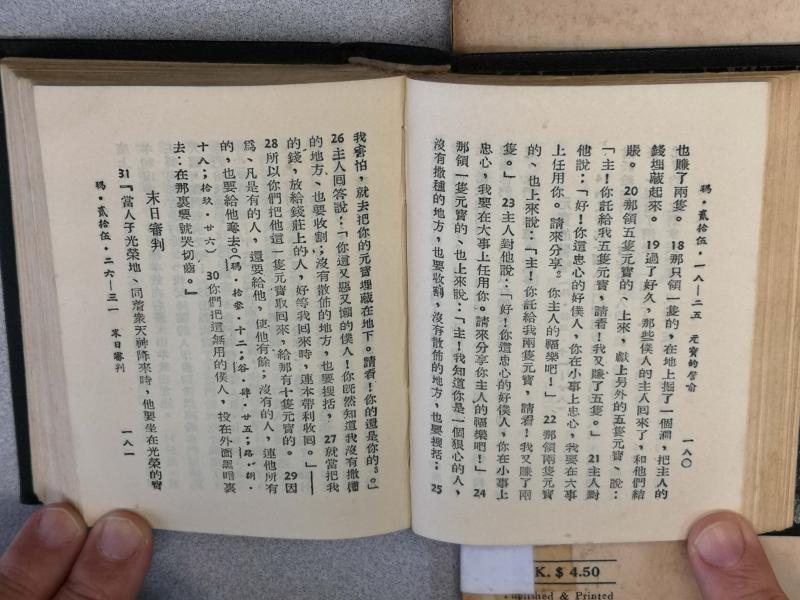 瑪·貳拾伍·一八—二五　元寶的譬喻　一八〇
也賺了兩隻。 18那只領一隻的，在地上掘了一個洞，把主人的
錢埋蔽起來。 19過了好久，那些僕人的主人回來了，和他們結
賬。 20那領五隻元寶的、上來，獻上另外的五隻元寶、說：
「主！你託給我五隻元寶，請看！我又賺了五隻。」 21主人對
他說：「好！你這忠心的好僕人，你在小事上忠心，我要在大事
上任用你。請來分享。你主人的福樂吧！」 22那領兩隻元寶
的、也上來說：「主！你託給我兩隻元寶，請看！我又賺了兩
隻。」 23主人對他說：「好！你這忠心的好僕人，你在小事上
忠心，我要在大事上任用你。請來分享你主人的福樂吧！」 24
那領一隻元寶的、也上來說：「主！我知道你是一個狠心的人，
沒有撒種的地方，也要收割，沒有散佈的地方，也要搜括； 25
我害怕，就去把你的元寶埋蔽在地下。請看！你的還是你的。」
26主人回答說：「你這又惡又懶的僕人！你既然知道我沒有撒種
的地方、也要收割；沒有散佈的地方，也要搜括， 27就當把我
的錢，放給錢莊上的人，好等我回來時，連本帶利收回。」——
28所以你們把他這一隻元寶取回來，給那有十隻元寶的。 29因
爲、凡是有的人，還要給他，使他有餘；沒有的人，連他所有
的，也要給他奪去。（瑪·拾叁·十二；谷·肆·廿五；路·捌·
十八；拾玖·廿六） 30你們把這無用的僕人，投在外面黑暗裏
去：在那裏要號哭切齒。」
末日審判
31「當人子光榮地、同着衆天神降來時，他要坐在光榮的寶
瑪·貳拾伍·二六—三一　末日審判　一八一
K. $ 4.50
Published & Printed